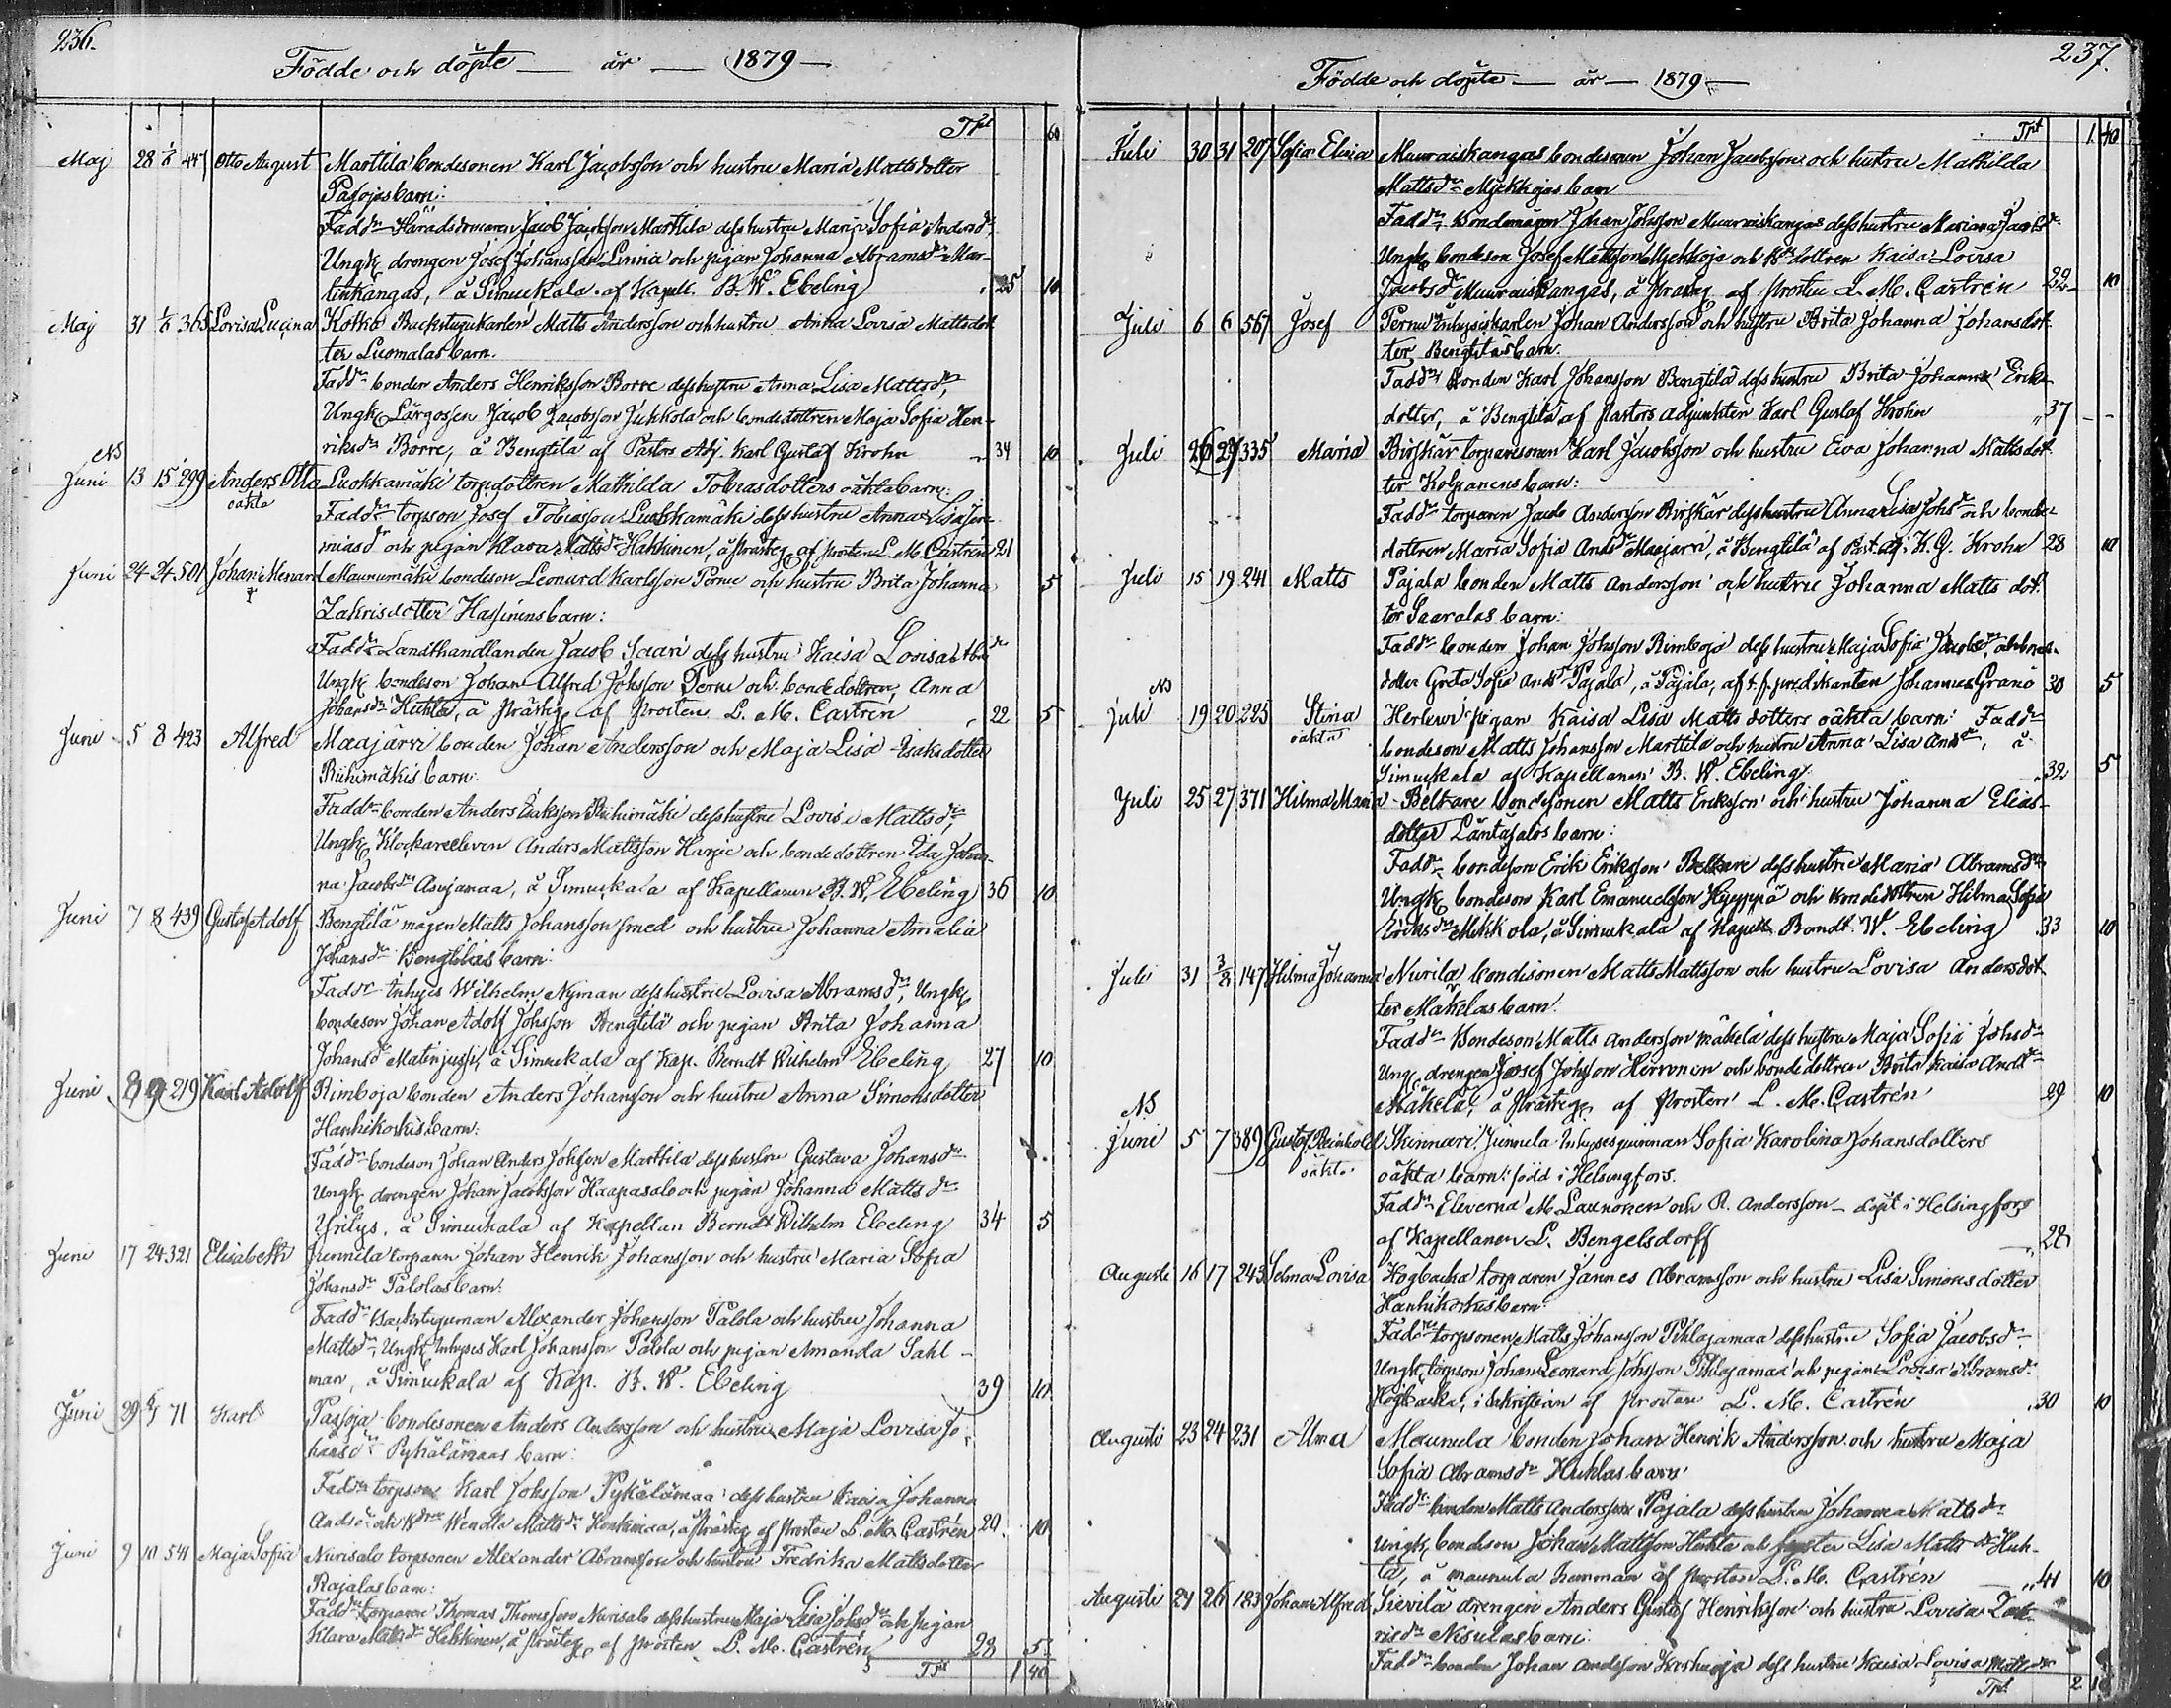 236.
Födde och döpte — år — 1879 —
Trpt 60
Maj 28 1/6 447 Otto August Marttila bondesonen Karl Jacobsson och hustru Maria Mattsdotter
Pasojas barn:
Fadd: Häradsdomaren Jacob Jacobsson Marttila dess hustru Maria Sofia Andersdr
Ungk. drengen Josef Johansson Linna och pigan Johanna Abramsdr Mar-
tinkangas, å Simuekala af Kapell. B. W. Ebeling 25 10
Maj 31 1/6 365 Lovisa Lucina Kotka Backstugukarlen Matts Andersson och hustru Anna Lovisa Mattsdot
ter Luomalas barn.
Faddr bonden Anders Henriksson Borre dess hustru Anna Lisa Mattsdr,
Ungk. Lärgossen Jacob Jacobsson Jukkola och bondedottren Maja Sofia Hen-
riksdr Borre, å Bengtila af Pastors Adj. Karl Gustaf Krohn 34 10
NB
Juni 13 15 299 Anders Otto Luokkamäki torpdottren Mathilda Tobiasdotters oäkta barn:
oäkta
Faddr torpson Josef Tobiasson Luokkamäki dess hustru Anna Lisa Jere
miasdr och pigan Klara Mattsdr Hakkinen, å prästeg. af prosten L. M. Castrén 21
Juni 24 24 501 Johan Menard Maunumäki bondeson Leonard Karlsson Perne och hustru Brita Johanna 5
Zakrisdotter Hassinens barn:
Faddr Landthandlanden Jacob Saari dess hustru Kaisa Lovisa Abr dr
Ungk. bondeson Johan Alfred Johsson Perne och bondedottren, Anna
Johansdr Huhta, å prästeg. af Prosten L. M. Castrén 22 5
Juni 5 8 423 Alfred Maajärvi bonden Johan Andersson och Maja Lisa Isaksdotter
Riihimäkis barn:
Faddr bonden Anders Isaksson Riihimäki dess hustru Lovisa Mattsdr,
Ungk. Klockareeleven Anders Mattsson Harju och bondedottren Ida Johan-
na Jacobsdr Asujamaa, å Simuekala af Kapellanen B. W. Ebeling 36 10
Juni 7 8 439 Gustaf Adolf Bengtilä mågen Matts Johansson smed och hustru Johanna Amalia
Johansdr Bengtiläs barn:
Faddr inhyses Wilhelm Nyman dess hustru Lovisa Abramsdr, Ungk.
bondeson Johan Adolf Johsson Bengtilä och pigan Brita Johanna
Johansdr Matinjussi, å Simuekala af Kap. Berndt Wilhelm Ebeling 27 10
Juni 8 9 219 Karl Adolf Rimboja bonden Anders Johansson och hustru Anna Simonsdotter
Hanhikoskis barn:
Faddr bondeson Johan Anders Johsson Marttila dess hustru Gustava Johansdr
Ungk. drengen Johan Jacobsson Haapasalo och pigan Johanna Mattsdr
Yrilys, å Simuekala af Kapellan Berndt Wilhelm Ebeling 34 5
Juni 17 24 321 Elisabeth Junnila torparn Johan Henrik Johansson och hustru Maria Sofia
Johansdr Palolas barn:
Faddr Backstuguman Alexander Johansson Palola och hustru Johanna
Mattsdr, Ungk. Inhyses Karl Johansson Palola och pigan Amanda Sahl-
man, å Simuekala af Kap. B. W. Ebeling 39 10
Juni 29 6/7 71 Karl Pasoja bondesonen Anders Andersson och hustru Maja Lovisa Jo-
hansdr Pykälämaas barn:
Faddr torpson Karl Johsson Pykälämaa dess hustru Kaisa Johanna
Andsdr och Wendla Mattsdr Honkimaa, å prästeg. af prosten L. M. Castrén 20 10
Juni 9 10 541 Maja Sofia Nurisalo torpsonen Alexander Abramsson och hustru Fredrika Mattsdotter
Rajalas barn:
Faddr torparen Thomas Thomsson Nurisalo dess hustru Maja Lisa Johsdr och pigan
Klara Mattsdr Hakkinen, å prästeg. af prosten L. M. Castrén 28 5
Trpt 1 40
237.
Födde och döpte — år — 1879 —
Trpt 1 40
Juli 30 31 207 Sofia Elvia Muuraiskangas bondesonen Johan Jacobsson och hustru Mathilda
Mattsdr Myckkojas barn
Faddr Bondemågen Johan Johsson Muuraiskangas dess hustru Mariana Jacobsdr
Ungk. bondeson Josef Mattsson Myckkoja och dottren Kaisa Lovisa
Jacobsdr Muuraiskangas, å prästeg. af prosten L. M. Castrén 22 10
Juli 6 6 567 Josef Perne Inhyseskarlen Johan Andersson och hustru Brita Johanna Johansdot
ter, Bengtiläs barn:
Faddr Bonden Karl Johansson Bengtilä dess hustru Brita Johanna Ericks
dotter, å Bengtilä af Pastors adjunkten Karl Gustaf Krohn 37 –
Juli 26 27 335 Maria Birskär torparesonen Karl Jacobsson och hustru Eva Johanna Mattsdot
ter Kolpanens barn:
Faddr torparen Jacob Andersson Birskär dess hustru Anna Lisa Johsdr och bonde
dottren Maria Sofia Andsdr Maajarvi, å Bengtilä af Past. Adj. K. G. Krohn 28 10
Juli 15 19 241 Matts Pajala bonden Matts Andersson och hustru Johanna Mattsdot
ter Saaralas barn:
Faddr bonden Johan Johsson Rimboja dess hustru Maja Sofia Jacobsdr, och bonde
dotter Greta Sofia Andsdr Pajala, å Pajala, af t. f. predikanten Johannes Granö 30 5
NB
Juli 19 20 225 Stina Herlewi pigan Kaisa Lisa Mattsdotters oäkta barn: Faddr
oäkta bondeson Matts Johansson Marttila och hustru Anna Lisa Andsdr, å
Simuekala af Kapellanen B. W. Ebeling 32 5
Juli 25 27 371 Hilma Maria Beltare bondesonen Matts Eriksson och hustru Johanna Elias-
dotter Läntäjalos barn:
Faddr bondeson Erik Eriksson Beltare dess hustru Maria Abramsdr
Ungk. bondeson Karl Emanuelsson Hyyppä och bondedottren Hilma Sofia
Eriksdr Mikkola, å Simuekala af Kapell. Berndt W. Ebeling 33 10
Juli 31 3/8 147 Hilma Johanna Nurila bondesonen Matts Mattsson och hustru Lovisa Andersdot
ter Mäkeläs barn:
Faddr Bondeson Matts Andersson Mäkelä dess hustru Maja Sofia Johsdr
Ungk. drengen Josef Johsson Hirvonen och bondedottren Brita Kaisa Andsdr
Mäkelä, å prästeg. af prosten L. M. Castrén 29 10
NB
Juni 5 7 389 Gustaf Reinhold Skinnari Junnila Inhysesqvinnan Sofia Karolina Johansdotters
oäkta oäkta barn: född i Helsingfors.
Faddr Eleverna M. Launonen och R. Andersson – döpt i Helsingfors
af Kapellanen L. Bengelsdorff 28
Augusti 16 17 243 Selma Lovisa Högbacka torparen Jannes Abramsson och hustru Lisa Simonsdotter
Hanhikoskis barn:
Faddr torpsonen Matts Johansson Pihlajamaa dess hustru Sofia Jacobsdr
Ungk. torpson Johan Leonard Johsson Pihlajamaa och pigan Lovisa Abramsdr
Högbacka, i Sakristian af prosten L. M. Castrén 30 10
Augusti 23 24 231 Alma Maunula bonden Johan Henrik Andersson och hustru Maja
Sofia Abramsdr Huhtas barn:
Faddr bonden Matts Andersson Pajala dess hustru Johanna Mattsdr
Ungk. bondeson Johan Mattsson Huhta och syster Lisa Mattsdr Huh-
ta, å Maunula hemman af prosten L. M. Castrén 41 10
Augusti 24 26 183 Johan Alfred Sievilä drengen Anders Gustaf Henriksson och hustru Lovisa Zack-
risdr Nisulas barn:
Faddr bonden Johan Andersson Koskinoja dess hustru Kaisa Lovisa Mattsdr
Trpt 2 10